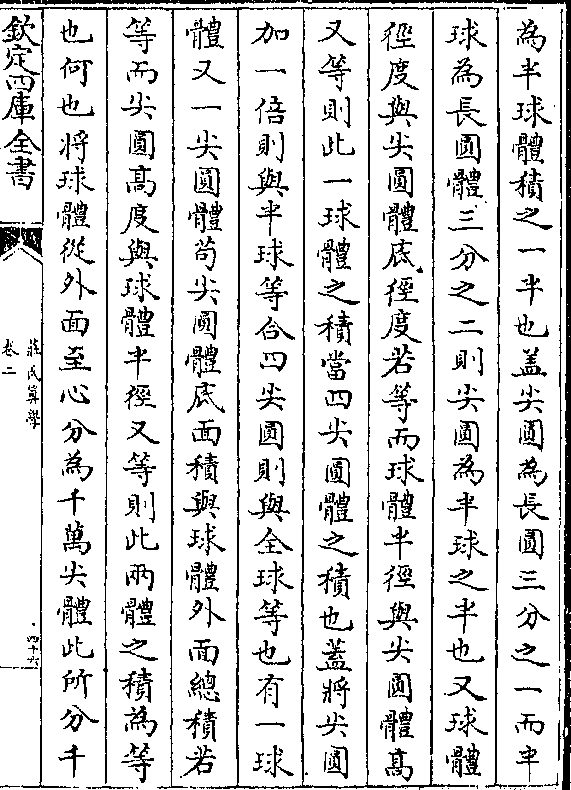 為半球體積之一半也蓋尖圓為長圓三分之一而半
球為長圓體三分之二則尖圓為半球之半也又球體
徑度與尖圓體底徑度若等而球體半徑與尖圓體高
又等則此一球體之積當四尖圓體之積也蓋將尖圓
加一倍則與半球等合四尖圓則與全球等也有一球
體又一尖圓體苟尖圓體底面積與球體外面總積若
等而尖圓高度與球體半徑又等則此兩體之積為等
也何也將球體從外面至心分為千萬尖體此所分千
欽定四庫全書
莊氏算學
卷二
四十六